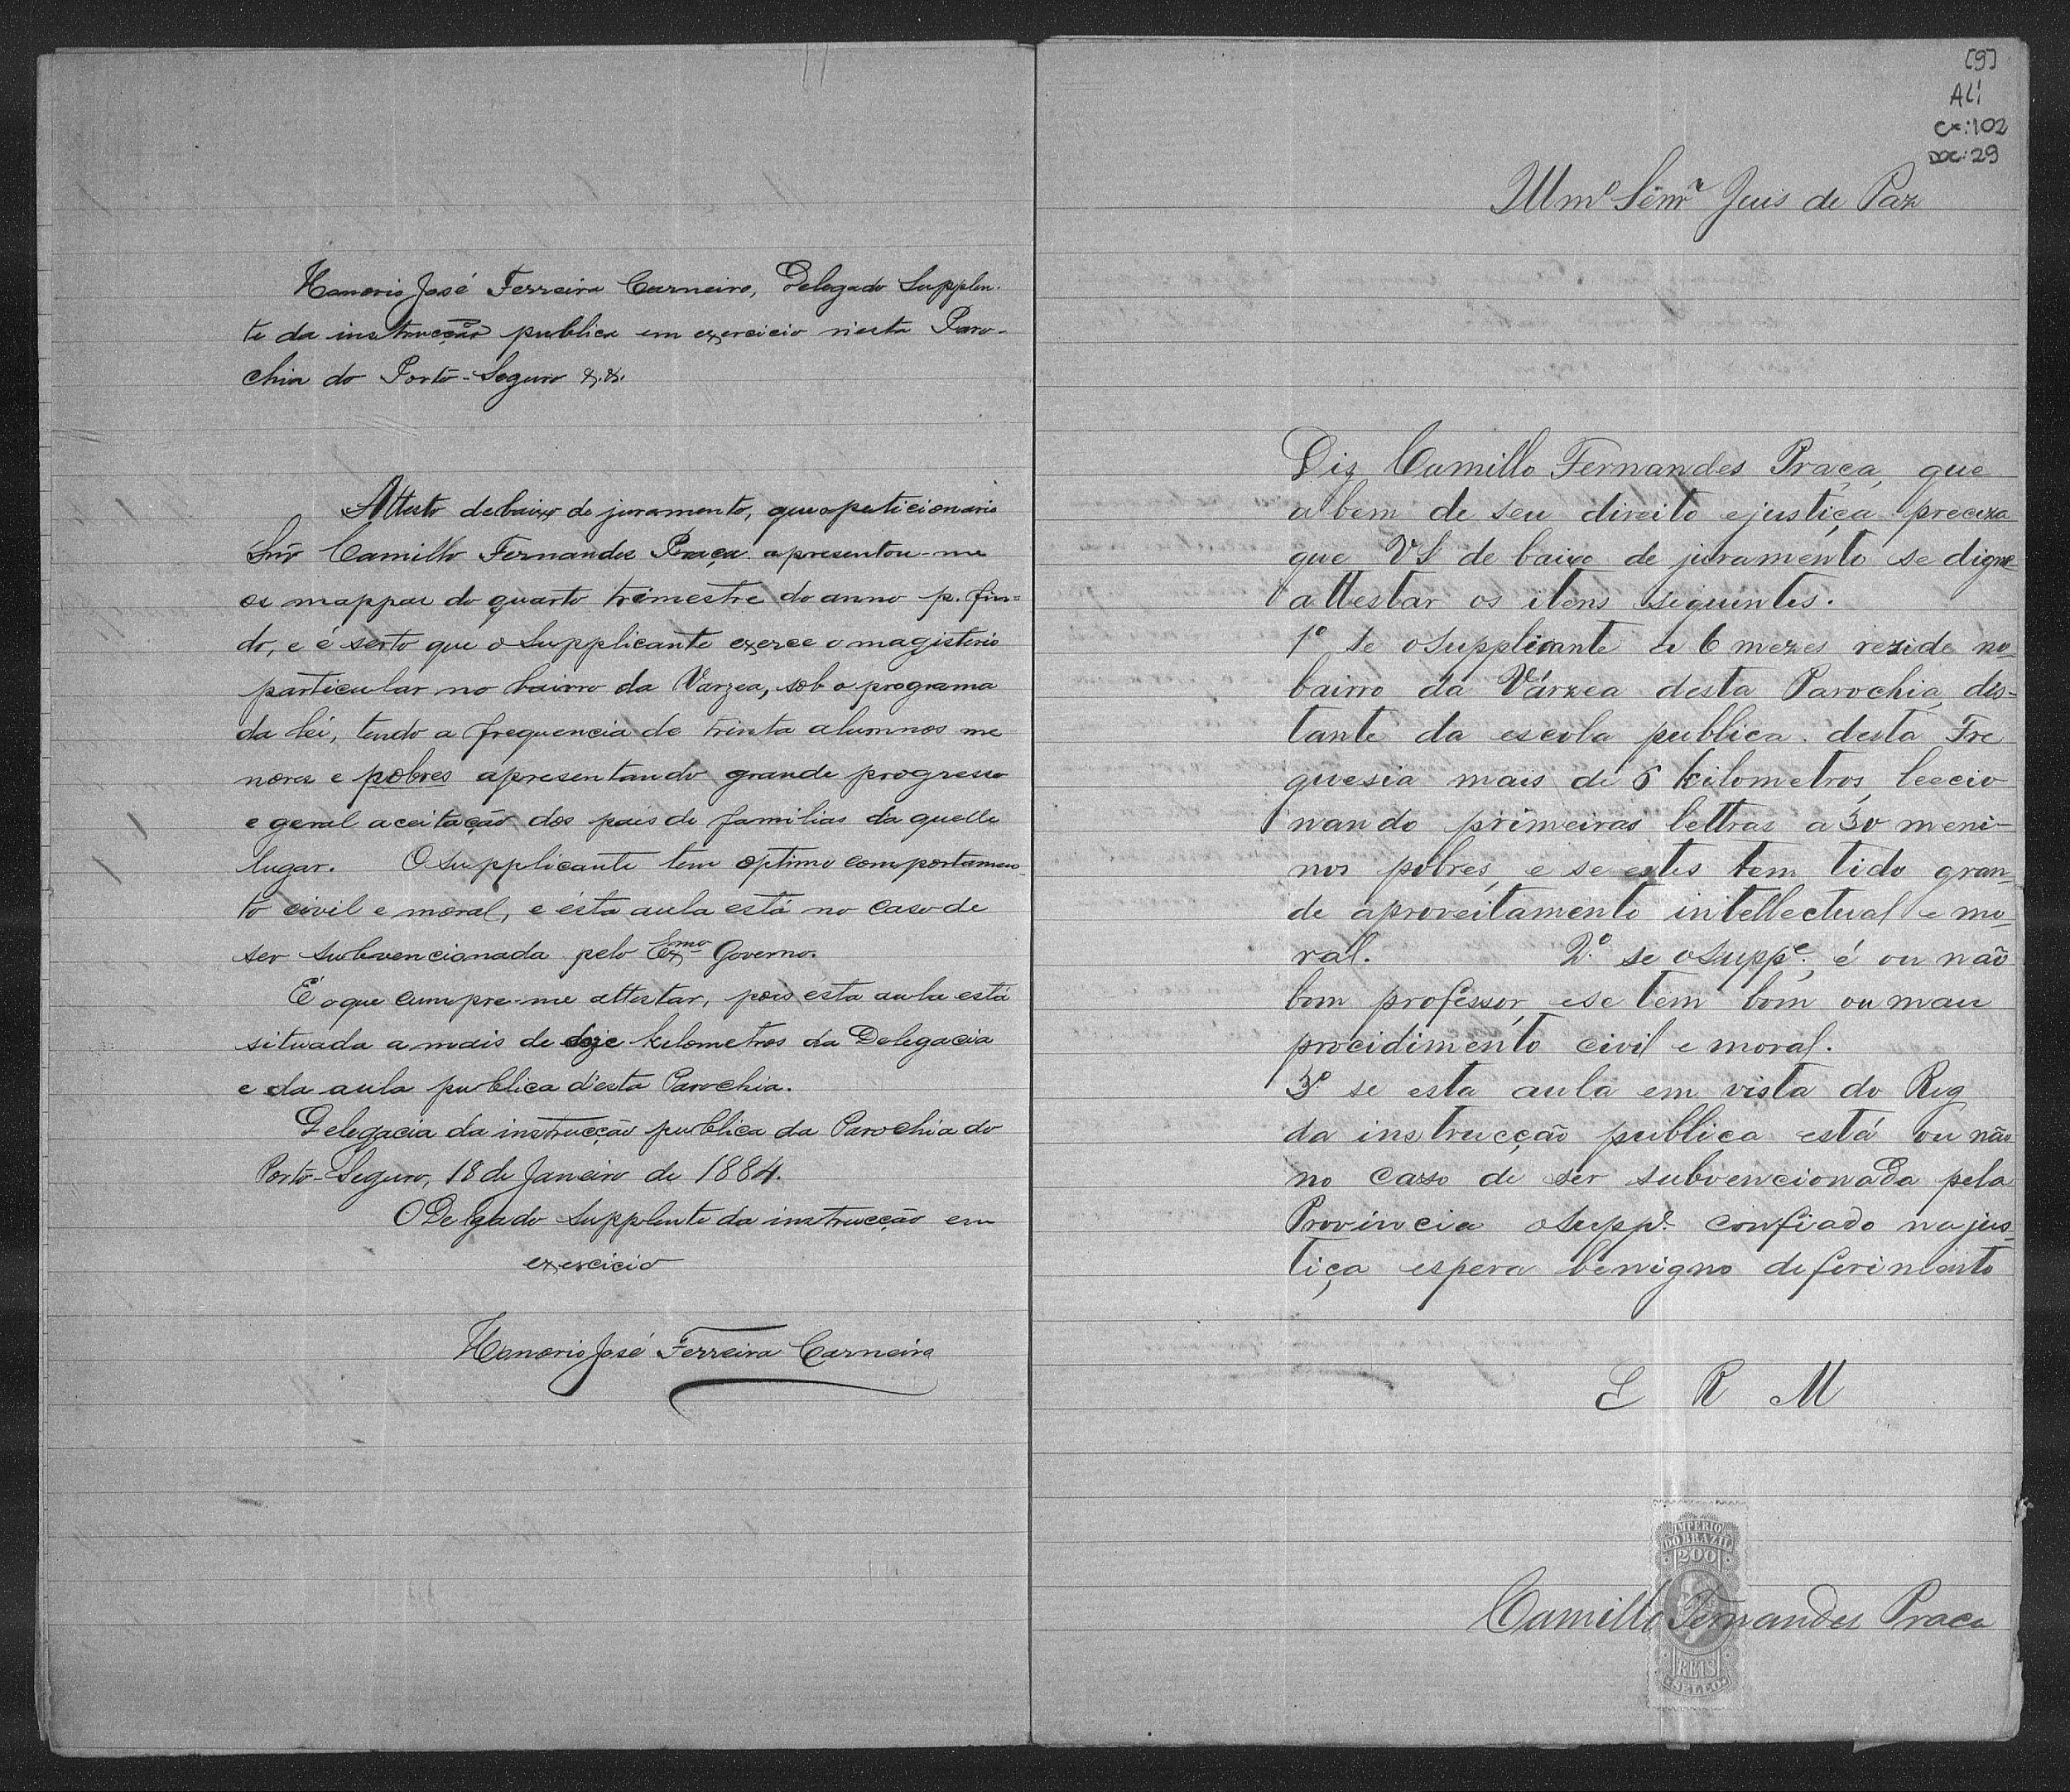 Honorio José Ferreira Carneiro, Delegado Supplen-
te da instrucção publica em exercicio n'esta Paro-
chia do Porto-Seguro &.&.
Attesto debaixo de juramento, que o peticionario
Snr̃ Camillo Fernandes Praça apresentou-me
os mappas do quarto trimestre do anno p. fin=
do, e é serto que o Supplicante exerce o magisterio
particular no bairro da Varzea, sob o programa
da lei, tendo a frequencia de trinta alumnos me
nores e pobres apresentando grande progresso
e geral aceitação dos pais de familias da quelle
lugar. O Supplicante tem optimo comportamen-
to civil e moral, e ésta aula está no caso de
ser subvencionada pelo Exmo Governo.
É o que cumpre-me attestar, pois esta aula está
situada a mais de doze kelometros da Delegacia
e da aula publica d'esta Parochia.
Delegacia da instrucção publica da Parochia do
Porto-Seguro, 18 de Janeiro de 1884.
O Delgado Supplente da instrucção em
exercicio
Honorio José Ferreira Carneiro
[9]
ALI
Cx:102
DOC:29
Illmº Senr Juis de Paz
Diz Camillo Fernandes Praça, que
a bem de seu direito e justiça preciza
que VS de baixo de juramento se digne
attestar os itens seguintes.
1º se o supplicante a 6 mezes rezide no
bairro da Várzea desta Parochia, dis-
tante da escola publica desta Fre
guesia mais de 6 kilometros, leccio
nando primeiras lettras a 30 meni-
nos pobres, e se estes tem tido gran-
de aproveitamento intellectual e mo
ral. 2º se o suppe, é ou não
bom professor, e se tem bom ou mau
procidimento civil e moral.
3º se esta aula em vista do Reg
da instrucção publica está ou não
no cazo de ser subvencionada pela
Provincia o suppe confiado na jus-
tiça espera benigno deferimento
E R M
IMPERIO
DO BRAZIL
200
Camillo Fernandes Praca
REIS
SELLO